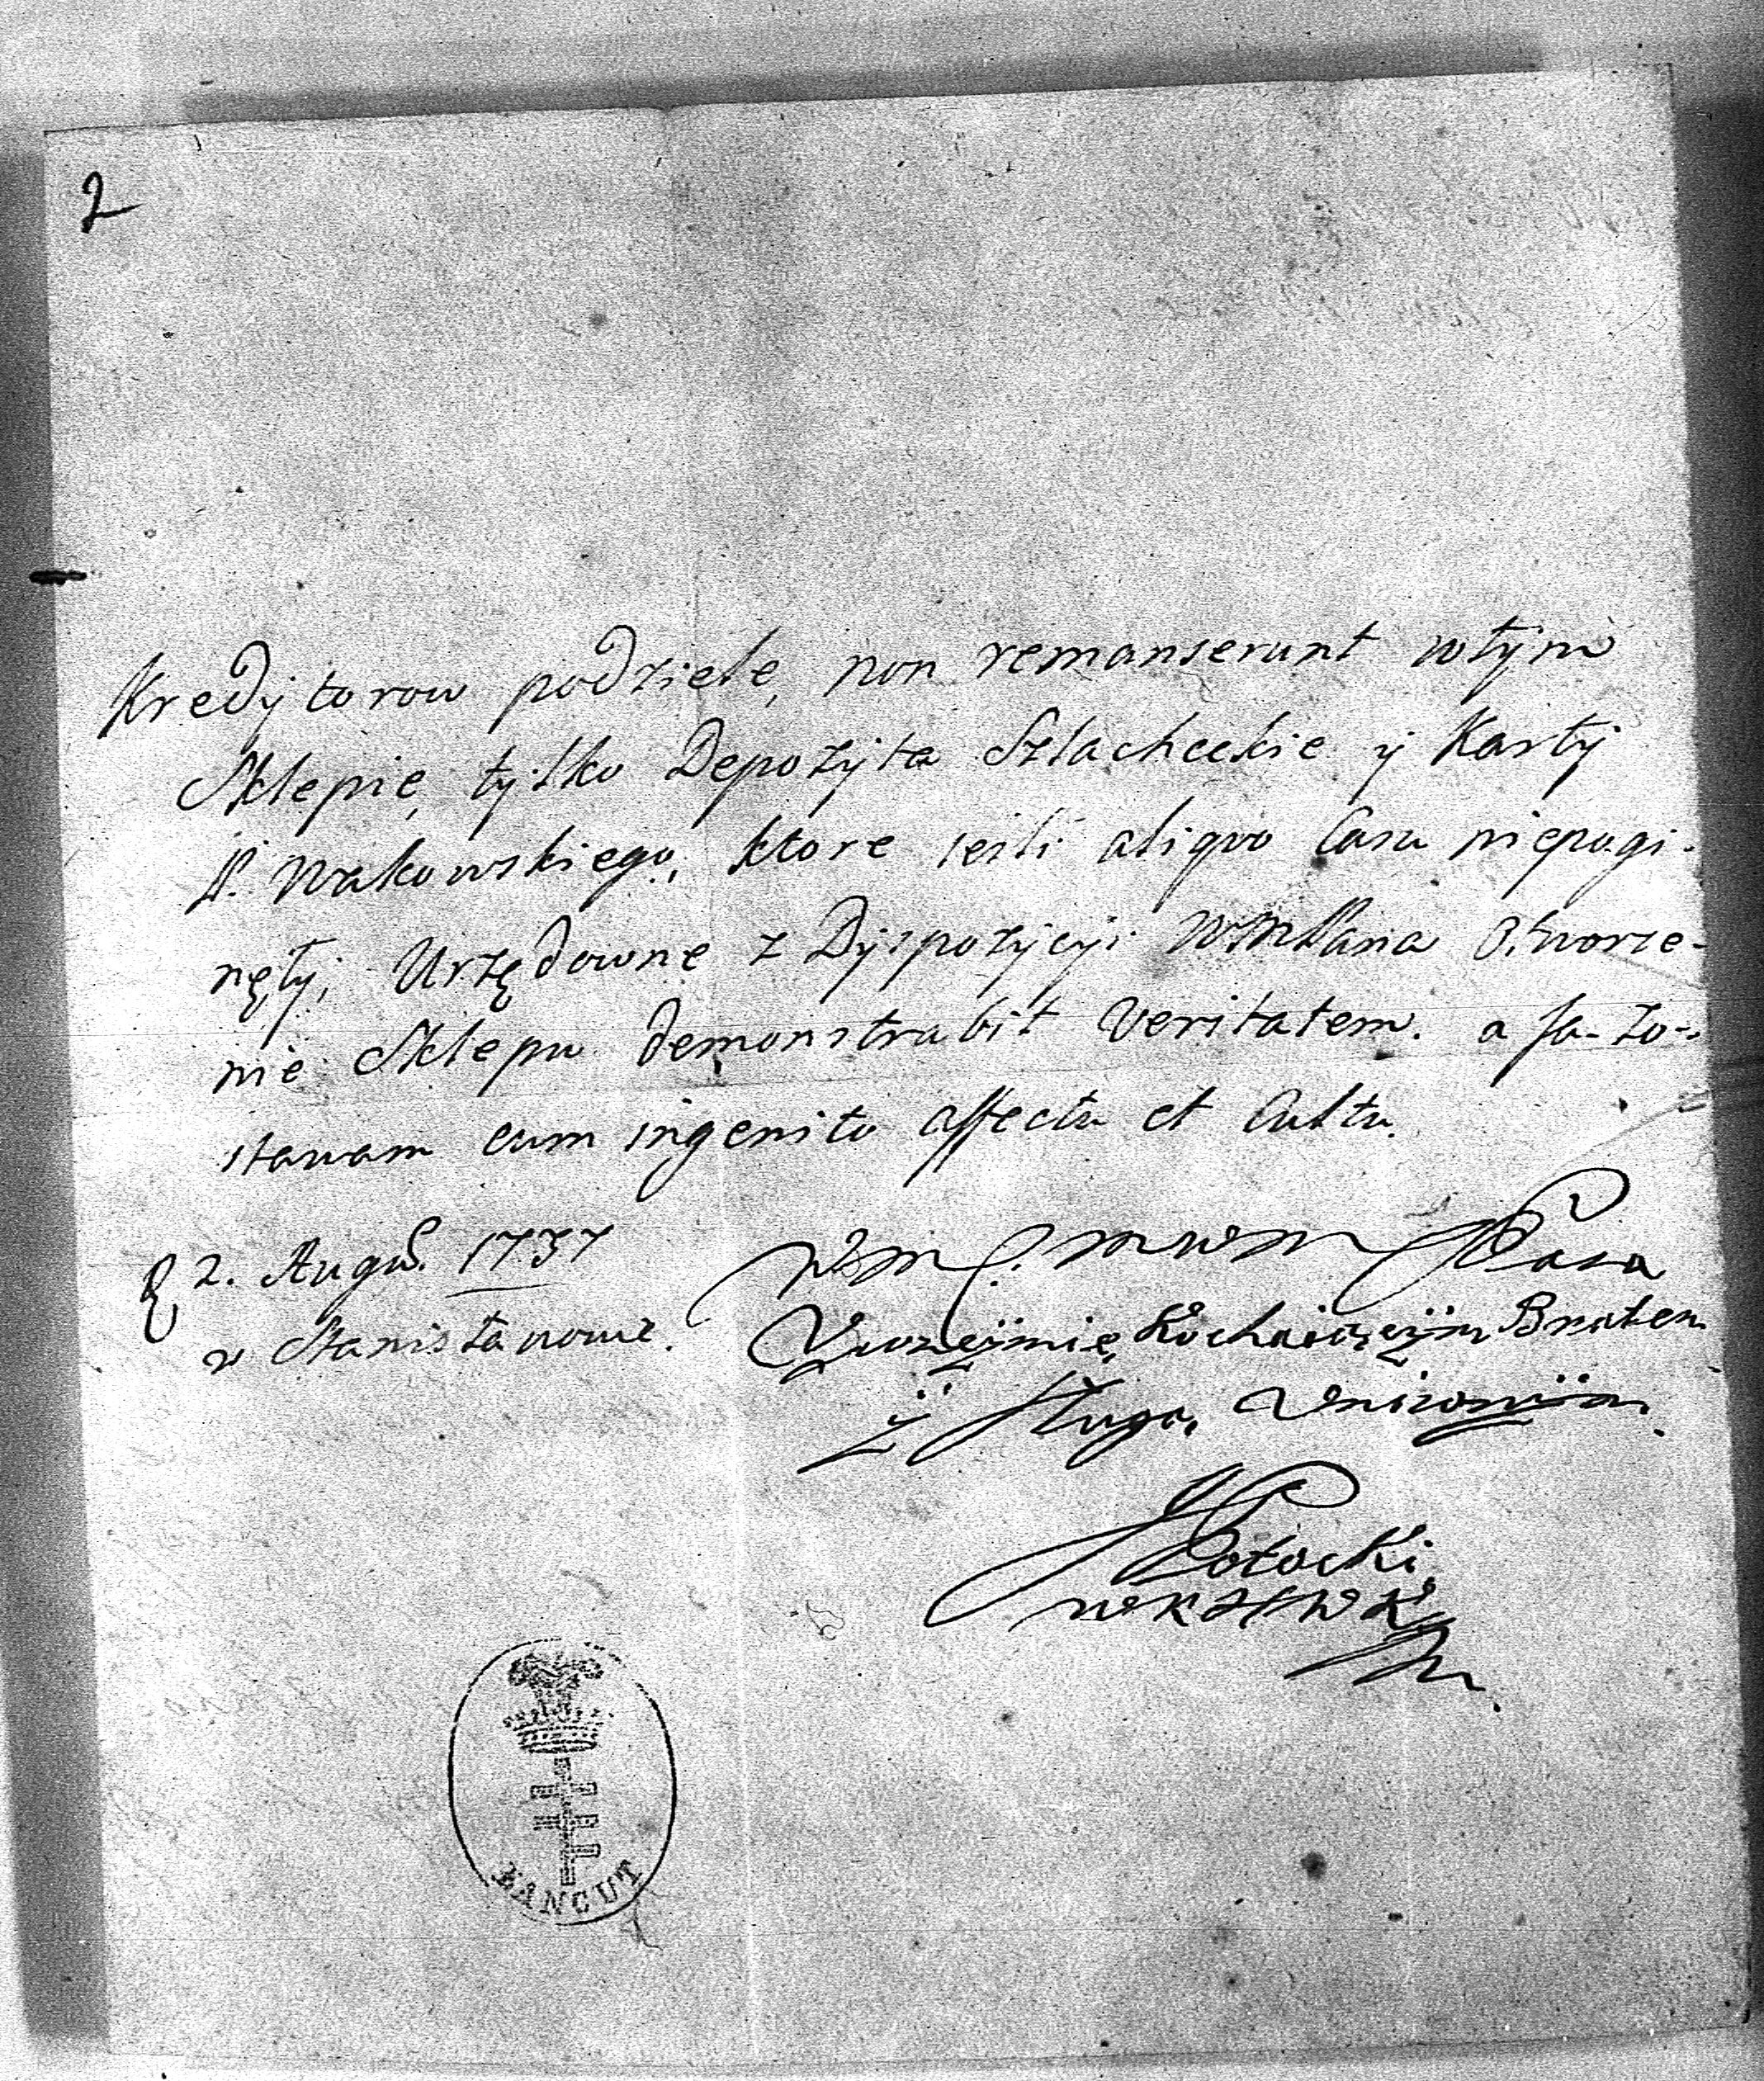 2
Kredytorow podziele, non remanserunt wtym
Sklepie, tylko Depozyta Szlacheckie y Karty
P. Wakowskiego, ktore iesli aliquo Casu niepogi-
nęły, Urzędowne z Dyspozycyi WMPana Otworze-
nie Sklepu demonstrabit Veritatem. a Ja zo-
stawam cum ingenito affectu et Cultu.
2. Augus. 1737
w Stanisławowie.
WM MWM Pana
Zyczliwie Kochaiącym Bratem
y sługą Uniżonym
Potocki
WKHWK
ŁAŃCUT